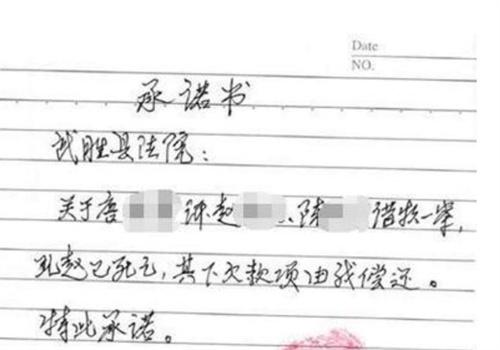 Date
NO.
承诺书
武胜县法院：
关于唐 诉赵 、陈 借款一案，
赵已死亡，其下欠款项由我偿还。
特此承诺。